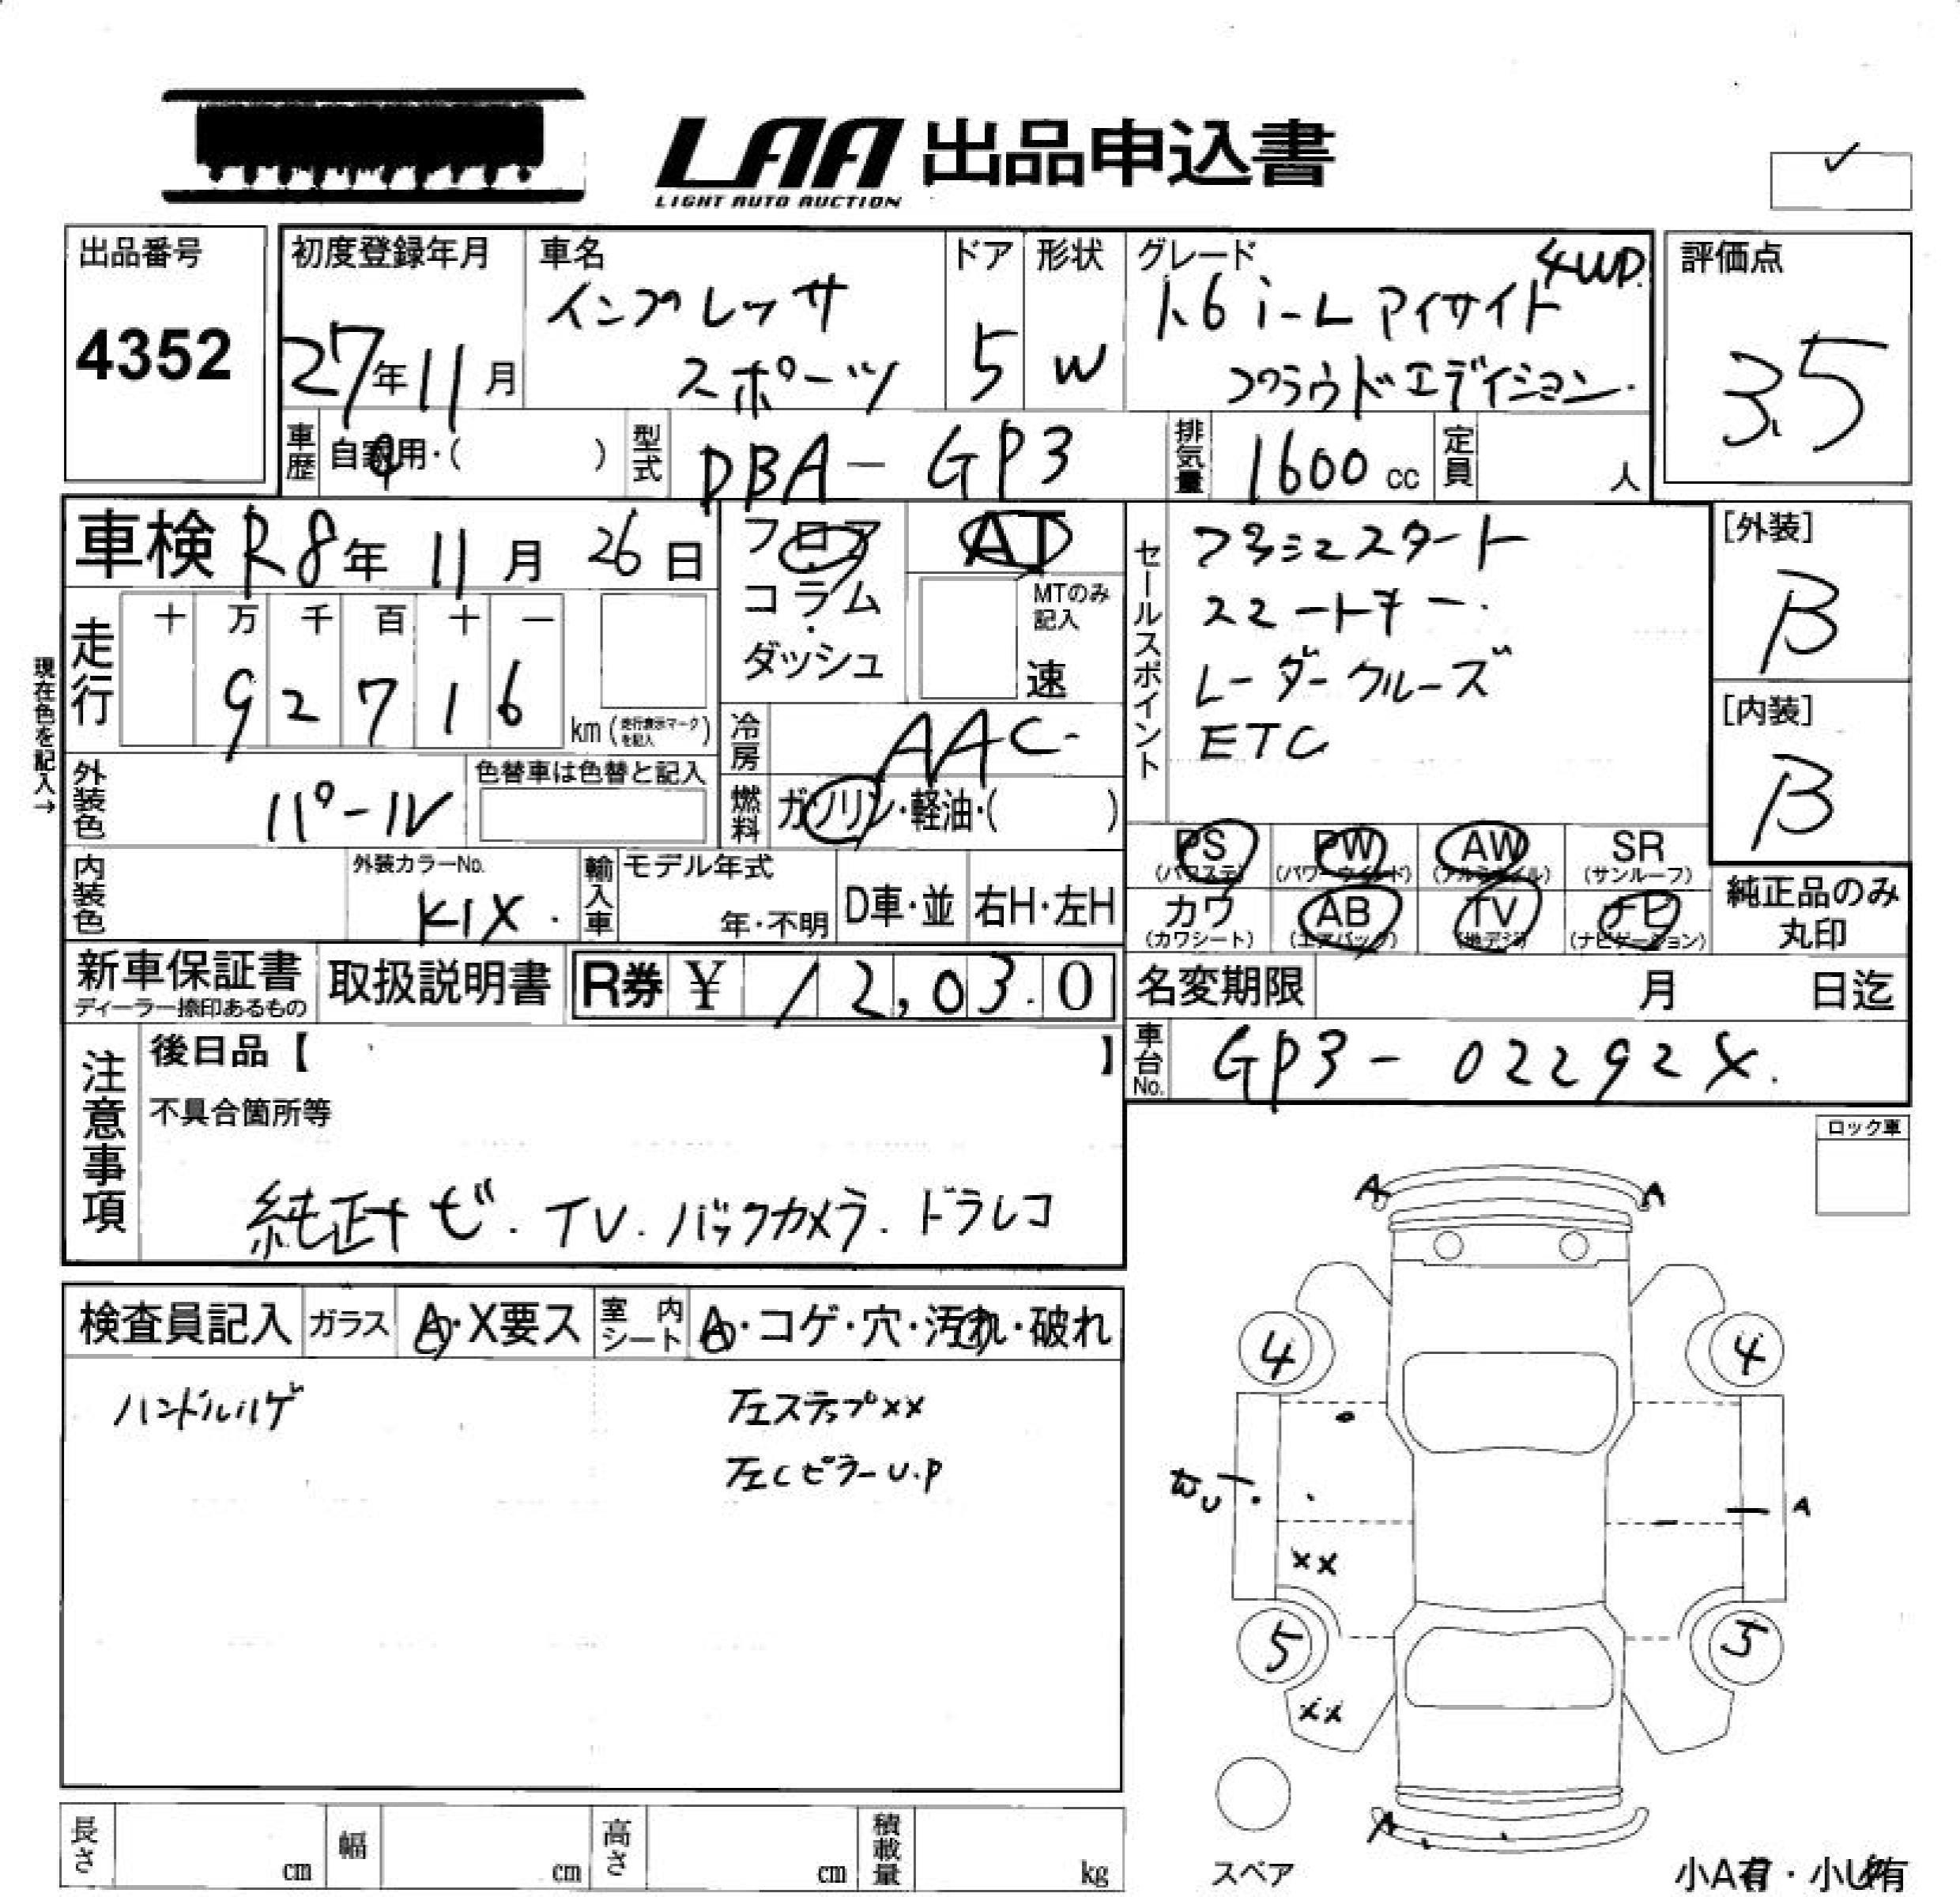 LAA 出品申込書
LIGHT AUTO AUCTION
出品番号
4352
初度登録年月
27年11月
車名
インプレッサ
スポーツ
ドア
5
形状
W
グレード
4WD.
1.6 i-L アイサイト
プラウドエディション.
評価点
3.5
車歴
自家用・( )
型式
DBA-GP3
排気量
1600 cc
定員
人
車検 R8年 11月 26日
フロア
コラム
・
ダッシュ
AT
MTのみ
記入
速
セールスポイント
プッシュスタート
スマートキー.
レーダークルーズ
ETC
[外装]
B
[内装]
B
現在色を記入→
走行
十 万 千 百 十 一
9 2 7 1 6
km (走行表示マークを記入)
冷房
AAC
外装色
パール
色替車は色替と記入
燃料
ガソリン・軽油・( )
PS
(パワステ)
PW
(パワーウインド)
AW
(アルミホイル)
SR
(サンルーフ)
カワ
(カワシート)
AB
(エアバッグ)
TV
(地デジ)
ナビ
(ナビゲーション)
純正品のみ
丸印
内装色
外装カラーNo.
K1X.
輸入車
モデル年式
年・不明
D車・並
右H・左H
新車保証書
ディーラー捺印あるもの
取扱説明書
R券 ¥ 12,030
名変期限 月 日迄
車台No.
GP3-02292X.
注意事項
後日品【 】
不具合箇所等
純正ナビ.TV.バックカメラ.ドラレコ
ロック車
検査員記入
ガラス
A・X要ス
室内シート
A・コゲ・穴・汚れ・破れ
ハンドルハゲ
左ステップXX
左CピラーU.P
A A
4 4
A
XX
5 5
XX
A
スペア
小A有・小U有
長さ cm
幅 cm
高さ cm
積載量 kg